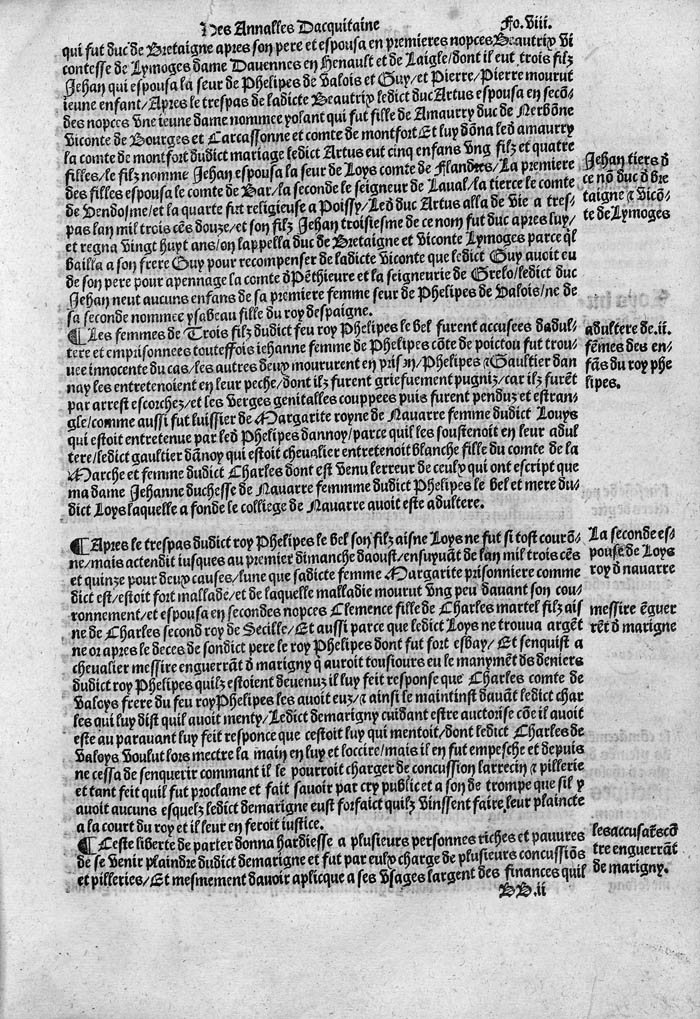 Des Annalles Dacquitaine Fo.viii.
qui fut duc de Bretaigne apres son pere et espousa en premieres nopces Beautrix vi
contesse de Lymoges dame Davennes en Henault et de Laigle/dont il eut trois filz
Jehan qui espousa la seur de Phelipes de Valois et Guy/et Pierre/Pierre mourut
ieune enfant/Apres le trespas de ladicte Beautrix ledict duc Artus espousa en secõ-
des nopces vne ieune dame nommee yolant qui fut fille de Amaurry duc de Nerbõne
Viconte de Bourges et Carcassonne et comte de montfort Et luy dõna led amaurry
la comte de montfort dudict mariage ledict Artus eut cinq enfans vng filz et quatre
filles/le filz nomme Jehan espousa la seur de Loys comte de Flandres/La premiere
des filles espousa le comte de Bar/la seconde le seigneur de Laual/la tierce le comte
de Vendosme/et la quarte fut religieuse a Poissy/Led duc Artus alla de vie a tres-
pas lan mil trois cẽs douze/et son filz Jehan troisiesme de ce nom fut duc apres luy/
et regna vingt huyt ans/on lappella duc de Bretaigne et Viconte Lymoges parce q̃l
bailla a son frere Guy pour recompenser de ladicte Viconte que ledict Guy auoit eu
de son pere pour apennage la comte dPẽthieure et la seigneurie de Grelo/ledict duc
Jehan neut aucuns enfans de sa premiere femme seur de Phelipes de Valois/ne de
sa seconde nommee ysabeau fille du roy despaigne.
Jehan tiers d
ce nõ duc d bre
taigne ⁊ vicõ-
te de Lymoges
¶ Les femmes de Trois filz dudict feu roy Phelipes le bel furent accusees dadul-
tere et emprisonnees touteffois iehanne femme de Phelipes cõte de poictou fut trou-
uee innocente du cas/les autres deux moururent en prison/Phelipes ⁊ Gaultier dan
nay les entretenoient en leur peche/dont ilz furent griefuement pugniz/car ilz furẽt
par arrest escorchez/et les verges genitalles couppees puis furent penduz et estran-
gle/comme aussi fut luissier de Margarite royne de Nauarre femme dudict Louys
qui estoit entretenue par led Phelipes dannoy/parce quil les soustenoit en leur adul
tere/ledict gaultier dãnoy qui estoit cheualier entretenoit blanche fille du comte de la
Marche et femme dudict Charles dont est venu lerreur de ceulx qui ont escript que
ma dame Jehanne duchesse de Nauarre femmme dudict Phelipes le bel et mere du-
dict Loys laquelle a fonde le colliege de Nauarre auoit este adultere.
adultere de.ii.
fẽmes des en-
fãs du roy phe
lipes.
¶ Apres le trespas dudict roy Phelipes le bel son filz aisne Loys ne fut si tost courõ-
ne/mais actendit iusques au premier dimanche daoust/ensuyuãt de lan mil trois cẽs
et quinze pour deux causes/lune que sadicte femme Margarite prisonniere comme
dict est/estoit fort mallade/et de laquelle malladie mourut vng peu dauant son cou-
ronnement/et espousa en secondes nopces Clemence fille de Charles martel filz ais
ne de Charles second roy de Secille/Et aussi parce que ledict Loys ne trouua argẽt
ne or apres le deces de sondict pere le roy Phelipes dont fut fort esbay/Et senquist a
cheualier messire enguerrãt d marigny q̃ auroit tousiours eu le manymẽt ds deniers
dudict roy Phelipes quilz estoient deuenuz il luy feit response que Charles comte de
Valoys frere du feu roy Phelipes les auoit euz/⁊ ainsi le maintinst dauãt ledict char
les qui luy dist quil auoit menty/Ledict demarigny cuidant estre auctorise cõe il auoit
este au parauant luy feit responce que cestoit luy qui mentoit/dont ledict Charles de
Valoys voulut lors mectre la main en luy et loccire/mais il en fut empesche et depuis
ne cessa de senquerir commant il le pourroit charger de concussion larrecin ⁊ pillerie
et tant feit quil fut proclame et fait sauoir par cry public et a son de trompe que sil y
auoit aucuns esquelz ledict demarigne eust forfaict quilz vinssent faire leur plaincte
a la court du roy et il leur en feroit iustice.
La seconde es-
pouse de Loys
roy d nauarre
messire ẽguer
rẽt d marigne
¶ Ceste liberte de parler donna hardiesse a plusieurs personnes riches et pauures
de se venir plaindre dudict demarigne et fut par eulx charge de plusieurs concussiõs
et pilleries/Et mesmement dauoir aplicque a ses vsages largent des finances quil
les accusatẽs cõ
tre enguerrãt
de marigny.
BB.ii